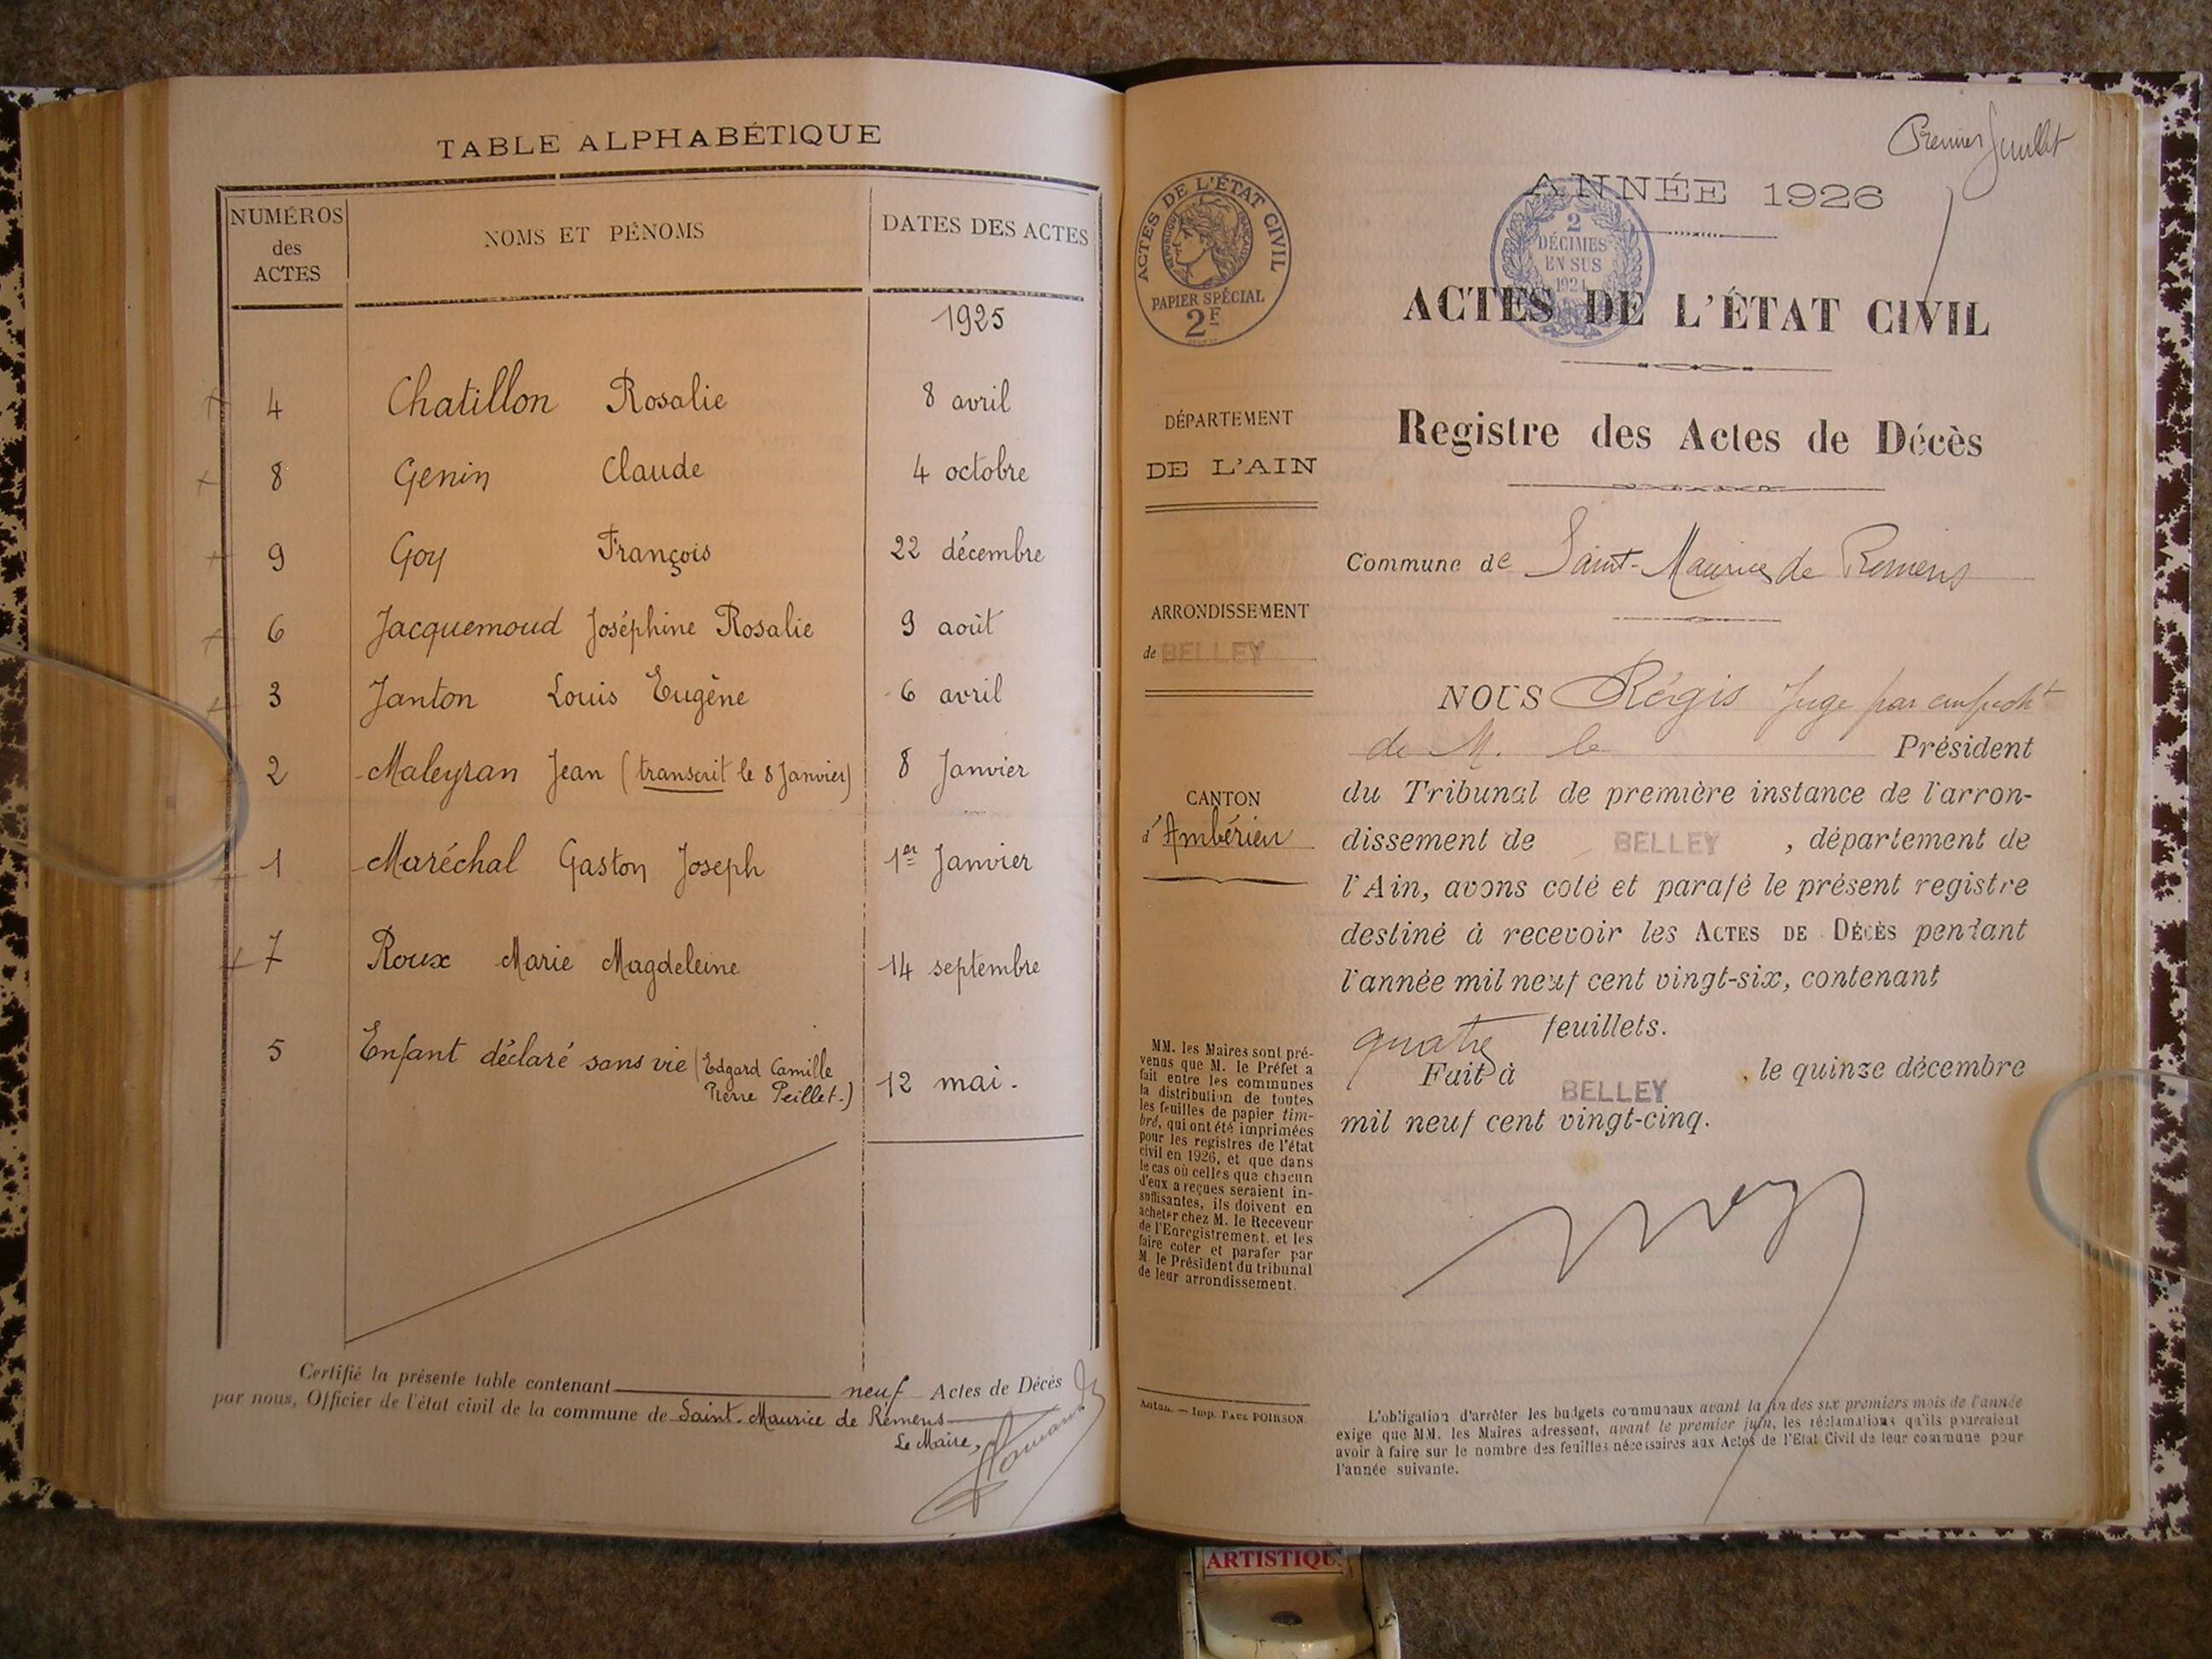 TABLE ALPHABÉTIQUE
NUMÉROS
des
ACTES
NOMS ET PÉNOMS
DATES DES ACTES
1925
4 Chatillon Rosalie 8 avril
8 Genin Claude 4 octobre
9 Goy François 22 décembre
6 Jacquemoud Joséphine Rosalie 9 août
3 Janton Louis Eugène 6 avril
2 Maleyran Jean (transcrit le 8 Janvier) 8 Janvier
1 Maréchal Gaston Joseph 1er Janvier
7 Roux Marie Magdeleine 14 septembre
5 Enfant déclaré sans vie (Edgard Camille
Pierre Peillet.) 12 mai.
Certifié la présente table contenant neuf Actes de Décès
par nous, Officier de l'état civil de la commune de Saint-Maurice de Rémens
Le Maire,
Premier feuillet
ACTES DE L'ÉTAT CIVIL
RÉPUBLIQUE FRANÇAISE
PAPIER SPÉCIAL
2F
ANNÉE 1926
2
DÉCIMES
EN SUS
1921
ACTES DE L'ÉTAT CIVIL
Registre des Actes de Décès
DÉPARTEMENT
DE L'AIN
Commune de Saint-Maurice de Remens
ARRONDISSEMENT
de BELLEY
CANTON
d'Ambérieu
NOUS Régis Juge par empecht
de M. le Président
du Tribunal de première instance de l'arron-
dissement de BELLEY, département de
l'Ain, avons coté et parafé le présent registre
destiné à recevoir les ACTES DE DÉCÈS pendant
l'année mil neuf cent vingt-six, contenant
quatre feuillets.
Fait à BELLEY, le quinze décembre
mil neuf cent vingt-cinq.
MM. les Maires sont pré-
venus que M. le Préfet a
fait entre les communes
la distribution de toutes
les feuilles de papier tim-
bré, qui ont été imprimées
pour les registres de l'état
civil en 1926, et que dans
le cas où celles que chacun
d'eux a reçues seraient in-
suffisantes, ils doivent en
acheter chez M. le Receveur
de l'Enregistrement, et les
faire coter et parafer par
M. le Président du tribunal
de leur arrondissement.
Autun. — Imp. PAUL POIRSON
L'obligation d'arrêter les budgets communaux avant la fin des six premiers mois de l'année
exige que MM. les Maires adressent, avant le premier juin, les réclamations qu'ils pourraient
avoir à faire sur le nombre des feuilles nécessaires aux Actes de l'Etat Civil de leur commune pour
l'année suivante.
ARTISTIQU